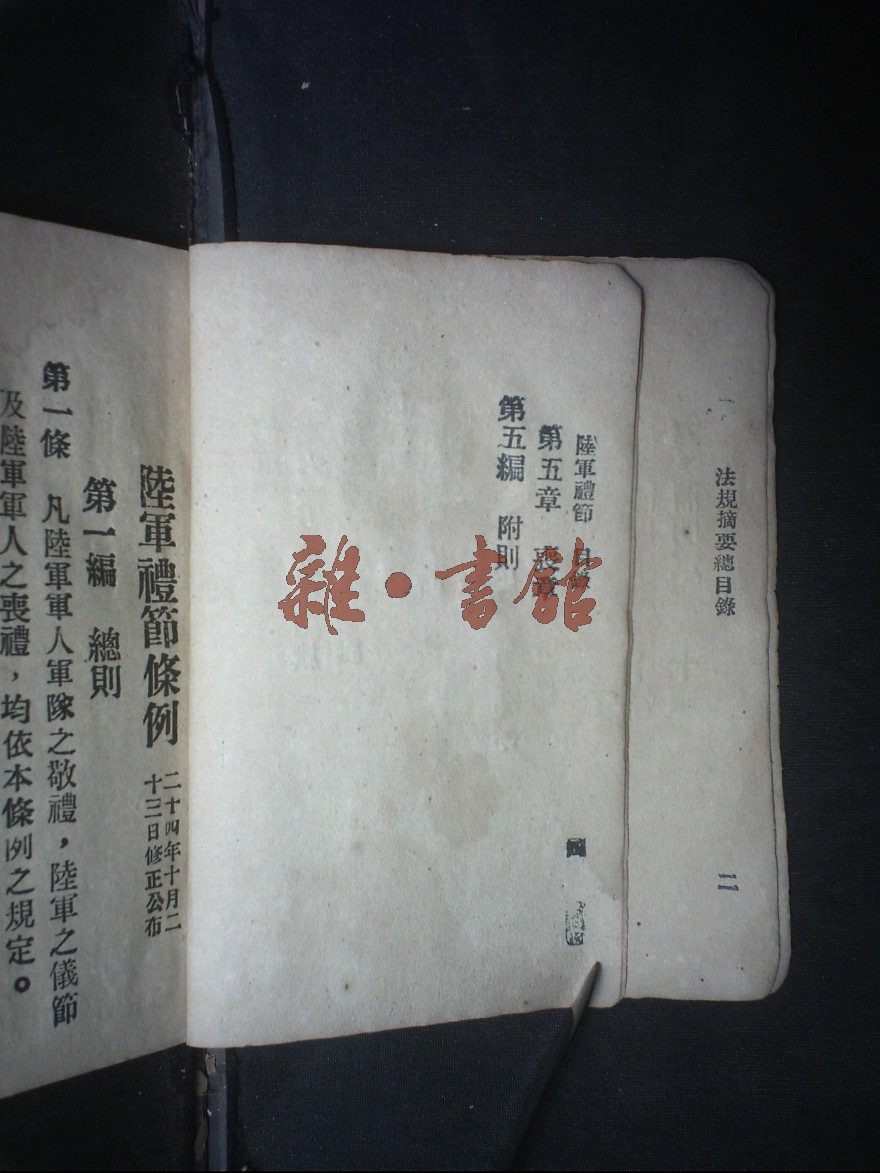 一
法規摘要總目錄
二
陸軍禮節 目錄
第五章 喪章
第五編 附則
四
陸軍禮節條例
二十四年十月二
十三日修正公布
第一編 總則
第一條 凡陸軍軍人軍隊之敬禮，陸軍之儀節
及陸軍軍人之喪禮，均依本條例之規定。
雜·書館